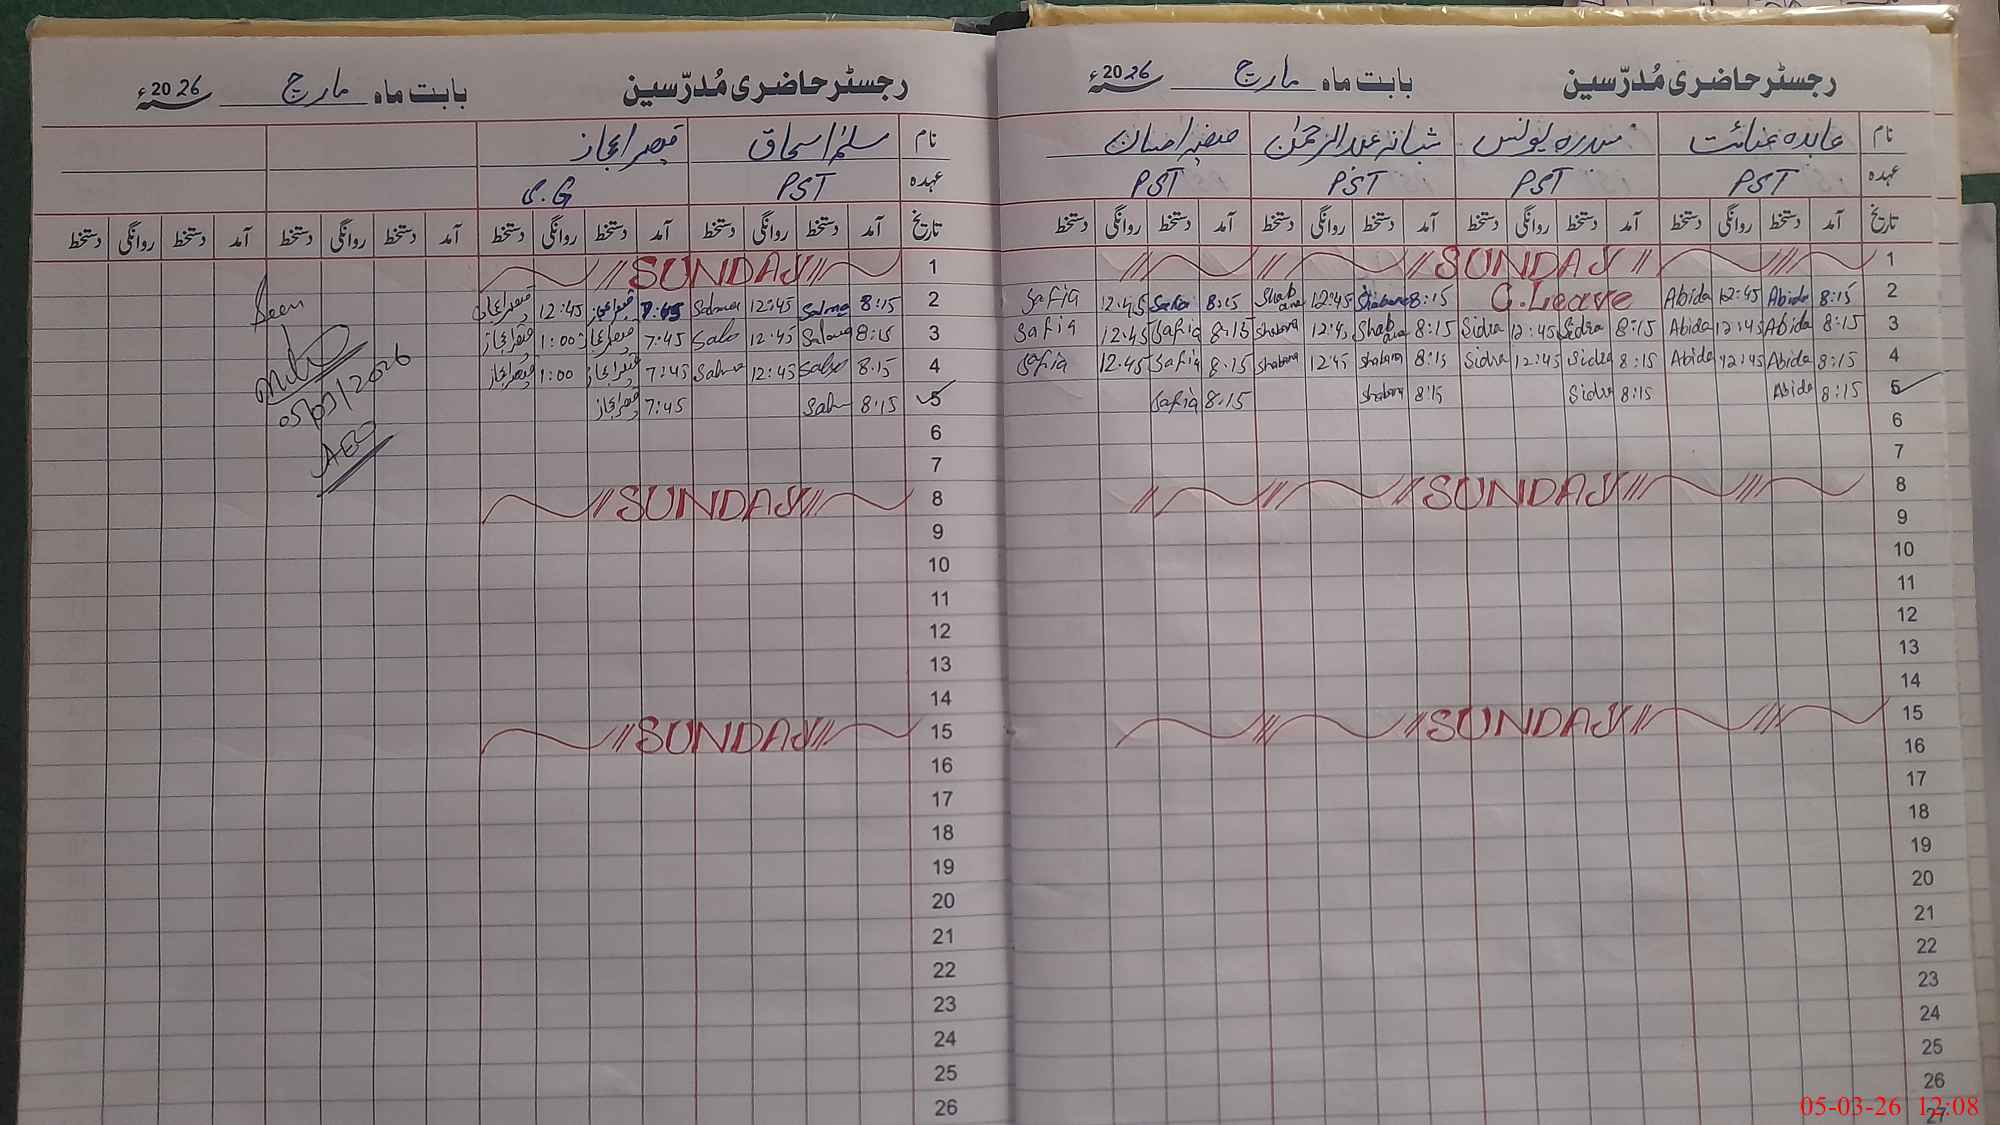 رجسٹر حاضری مُدرّسین بابت ماہ مارچ 2026ء
نام عابدہ عنائت سدرہ یونس شبانہ عبدالرحمٰن صفیہ احسان
عہدہ PST PST PST PST
تاریخ آمد دستخط روانگی دستخط آمد دستخط روانگی دستخط آمد دستخط روانگی دستخط آمد دستخط روانگی دستخط
1 SUNDAY
2 8:15 Abida 12:45 Abida C.Leave 8:15 Shabana 12:45 Shabana 8:15 Safia 12:45 Safia
3 8:15 Abida 12:45 Abida 8:15 Sidra 12:45 Sidra 8:15 Shabana 12:45 Shabana 8:15 Safia 12:45 Safia
4 8:15 Abida 12:45 Abida 8:15 Sidra 12:45 Sidra 8:15 Shabana 12:45 Shabana 8:15 Safia 12:45 Safia
5 8:15 Abida 8:15 Sidra 8:15 Shabana 8:15 Safia
6
7
8 SUNDAY
9
10
11
12
13
14
15 SUNDAY
16
17
18
19
20
21
22
23
24
25
26
27
رجسٹر حاضری مُدرّسین بابت ماہ مارچ 2026ء
نام سلمیٰ اسحاق قیصر اعجاز
عہدہ PST C.G
تاریخ آمد دستخط روانگی دستخط آمد دستخط روانگی دستخط آمد دستخط روانگی دستخط آمد دستخط روانگی دستخط
1 SUNDAY
2 8:15 Salma 12:45 Salma 7:45 قیصر اعجاز 12:45 قیصر اعجاز
3 8:15 Salma 12:45 7:45 قیصر اعجاز 1:00 قیصر اعجاز
4 8:15 12:45 Salma 7:45 قیصر اعجاز 1:00 قیصر اعجاز
5 8:15 7:45 قیصر اعجاز
6
7
8 SUNDAY
9
10
11
12
13
14
15 SUNDAY
16
17
18
19
20
21
22
23
24
25
26
Seen
05/03/2026
AEO
05-03-26 12:08